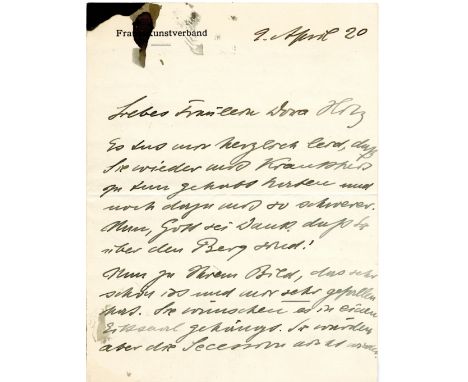 Frauenkunstverband
9. April 20
Liebes Fräulein Dora Hitz
Es tut mir herzlich leid, daß
Sie wieder mit Krankheit
zu tun gehabt haben und
noch dazu mit so schwerer.
Nun, Gott sei Dank, daß Sie
über den Berg sind!
Nun zu Ihrem Bild, das sehr
schön ist und mir sehr gefallen
hat. Sie wünschen es in einen
gehängt. Sie würden
aber die Secession